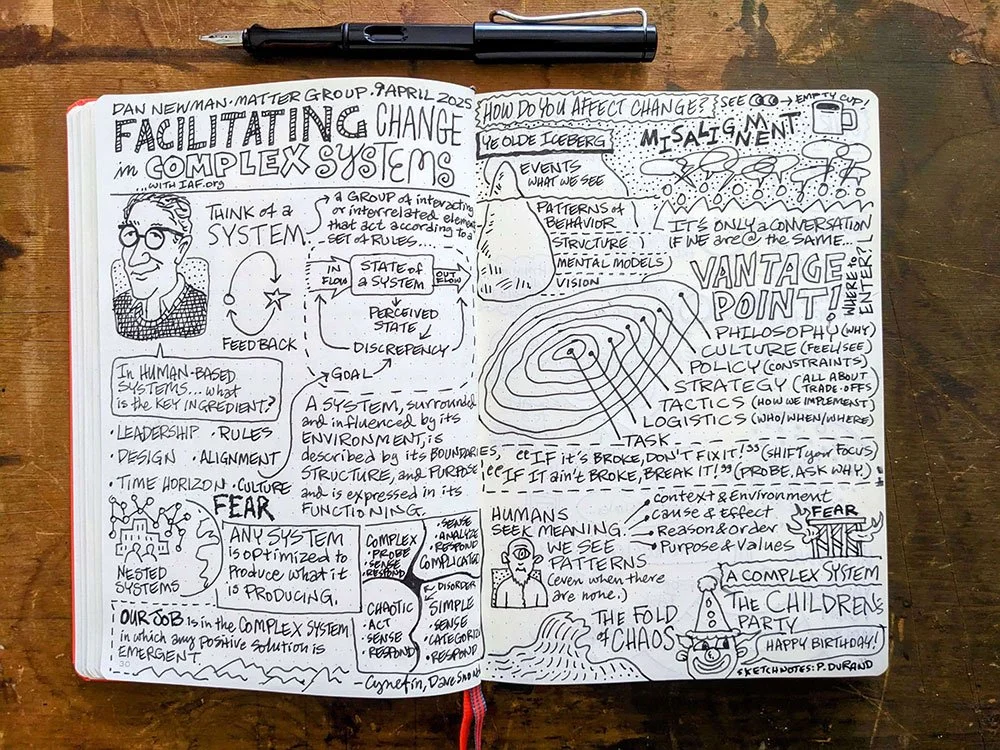 DAN NEWMAN · MATTER GROUP · 9 APRIL 2025
FACILITATING CHANGE
in COMPLEX SYSTEMS
...WITH IAF.org
THINK of a
SYSTEM...
a GROUP of interacting
or interrelated
that act according to a
SET of RULES....
FEEDBACK
IN FLOW
STATE of
a SYSTEM
OUT FLOW
PERCEIVED
STATE
DISCREPENCY
GOAL
In HUMAN-BASED
SYSTEMS... what
is the KEY INGREDIENT?
· LEADERSHIP · RULES
· DESIGN · ALIGNMENT
· TIME HORIZON · CULTURE
FEAR
A SYSTEM, surrounded
and influenced by its
ENVIRONMENT, is
described by its BOUNDARIES,
STRUCTURE, and PURPOSE
and is expressed in its
FUNCTIONING.
NESTED
SYSTEMS
ANY SYSTEM
is optimized to
produce what it
is PRODUCING.
COMPLEX
· PROBE
· SENSE
· RESPOND
· SENSE
· ANALYZE
· RESPOND
COMPLICATED
DISORDER
CHAOTIC
· ACT
· SENSE
· RESPOND
SIMPLE
· SENSE
· RESPOND
OUR JOB is in the COMPLEX SYSTEM
in which any positive solution is
EMERGENT.
30
— Cynefin, Dave
HOW DO YOU AFFECT CHANGE?
SEE
EMPTY CUP!
YE OLDE ICEBERG
EVENTS
WHAT WE SEE
PATTERNS of
BEHAVIOR
STRUCTURE
MENTAL MODELS
VISION
MISALIGNMENT
IT'S ONLY a CONVERSATION
IF WE are @ the SAME...
VANTAGE
POINT!
WHERE to
ENTER?
PHILOSOPHY (WHY)
CULTURE (FEEL/SEE)
POLICY (CONSTRAINTS)
STRATEGY (ALL ABOUT
TRADE-OFFS
TACTICS (HOW WE IMPLEMENT)
LOGISTICS (WHO/WHEN/WHERE)
TASK
"IF it's BROKE, DON'T FIX IT!" (SHIFT your FOCUS)
"IF IT ain't BROKE, BREAK IT!" (PROBE, ASK WHY)
HUMANS
SEEK MEANING.
Context & Environment
Cause & Effect
Reason & Order
Purpose & Values
FEAR
WE SEE
PATTERNS
(even when there
are none.)
THE FOLD
of CHAOS
A COMPLEX SYSTEM
THE CHILDREN'S
PARTY
HAPPY BIRTHDAY!
SKETCHNOTES: P. DURAND